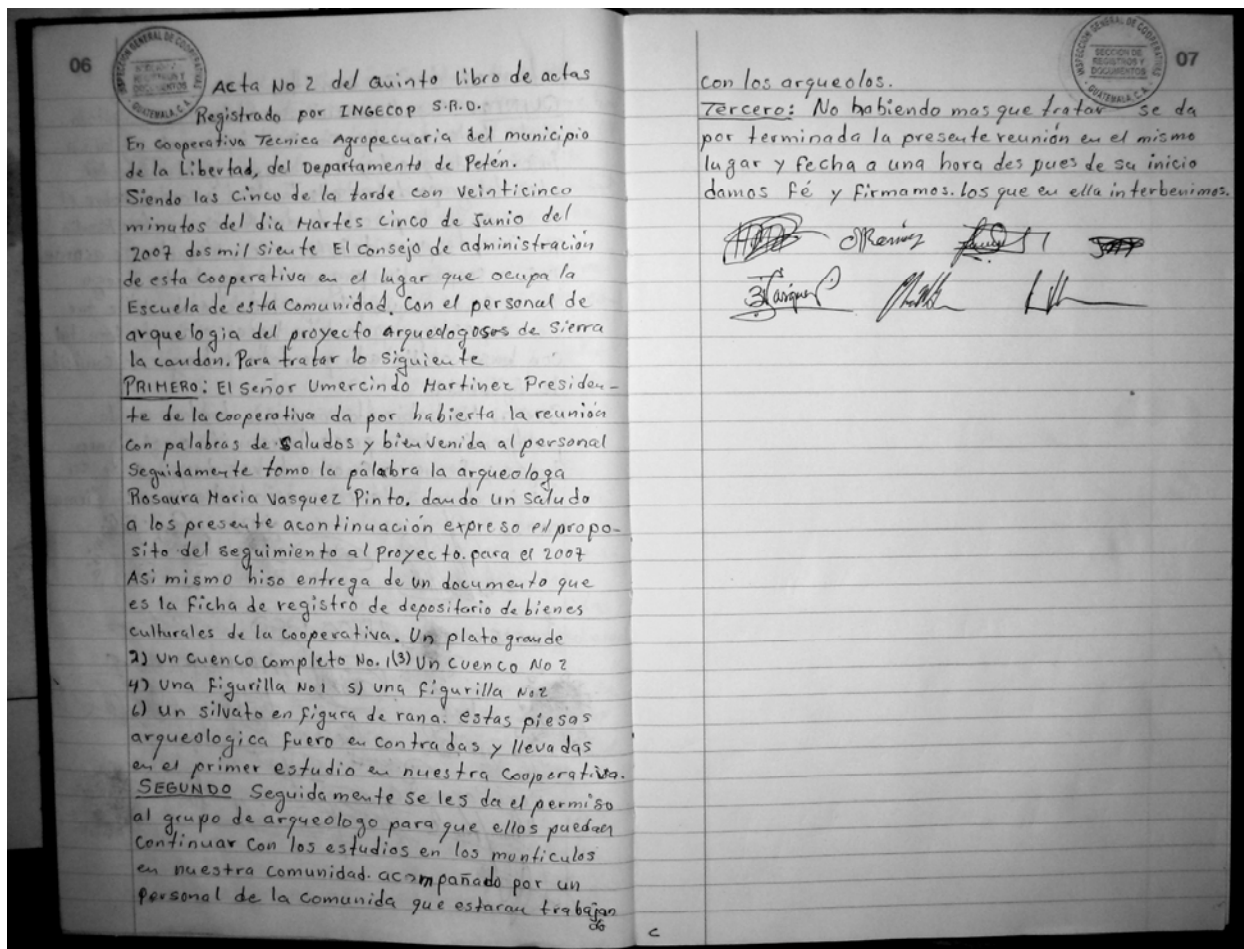 06
INSPECCIÓN GENERAL DE COOPERATIVAS
GUATEMALA, C.A.
Acta No 2 del Quinto libro de actas
Registrado por INGECOP S.R.D.
En cooperativa Tecnica Agropecuaria del municipio
de la Libertad, del Departamento de Petén.
Siendo las Cinco de la tarde con veinticinco
minutos del dia Martes cinco de Junio del
2007 dos mil siente El consejo de administración
de esta cooperativa en el lugar que ocupa la
Escuela de esta Comunidad. Con el personal de
arquelogia del proyecto arqueologosos de Sierra
la candon. Para tratar lo siguiente
PRIMERO: El Señor Umercindo Martinez Presiden-
te de la cooperativa da por habierta la reunión
con palabras de saludos y bienvenida al personal
Seguidamente tomo la palabra la arqueologa
Rosaura Maria Vasquez Pinto. dando un saludo
a los presente acontinuación expreso el propo-
sito del seguimiento al Proyecto. para el 2007
Asi mismo hiso entrega de un documento que
es la ficha de registro de depositario de bienes
culturales de la cooperativa. Un plato grande
2) un cuenco completo No. 1 (3) Un cuenco No 2
4) una Figurilla No1 5) una figurilla No2
6) un silvato en figura de rana. estas piesas
arqueologica fuero en contradas y llevadas
en el primer estudio en nuestra cooperativa.
SEGUNDO Seguidamente se les da el permiso
al grupo de arqueologo para que ellos puedan
continuar con los estudios en los monticulos
en nuestra comunidad. acompañado por un
personal de la comunida que estaran trabajan
do
c
INSPECCIÓN GENERAL DE COOPERATIVAS
SECCION DE
REGISTROS Y
DOCUMENTOS
GUATEMALA, C.A.
07
con los arqueolos.
Tercero: No habiendo mas que tratar se da
por terminada la presente reunión en el mismo
lugar y fecha a una hora des pues de su inicio
damos fé y firmamos. los que en ella interbenimos.